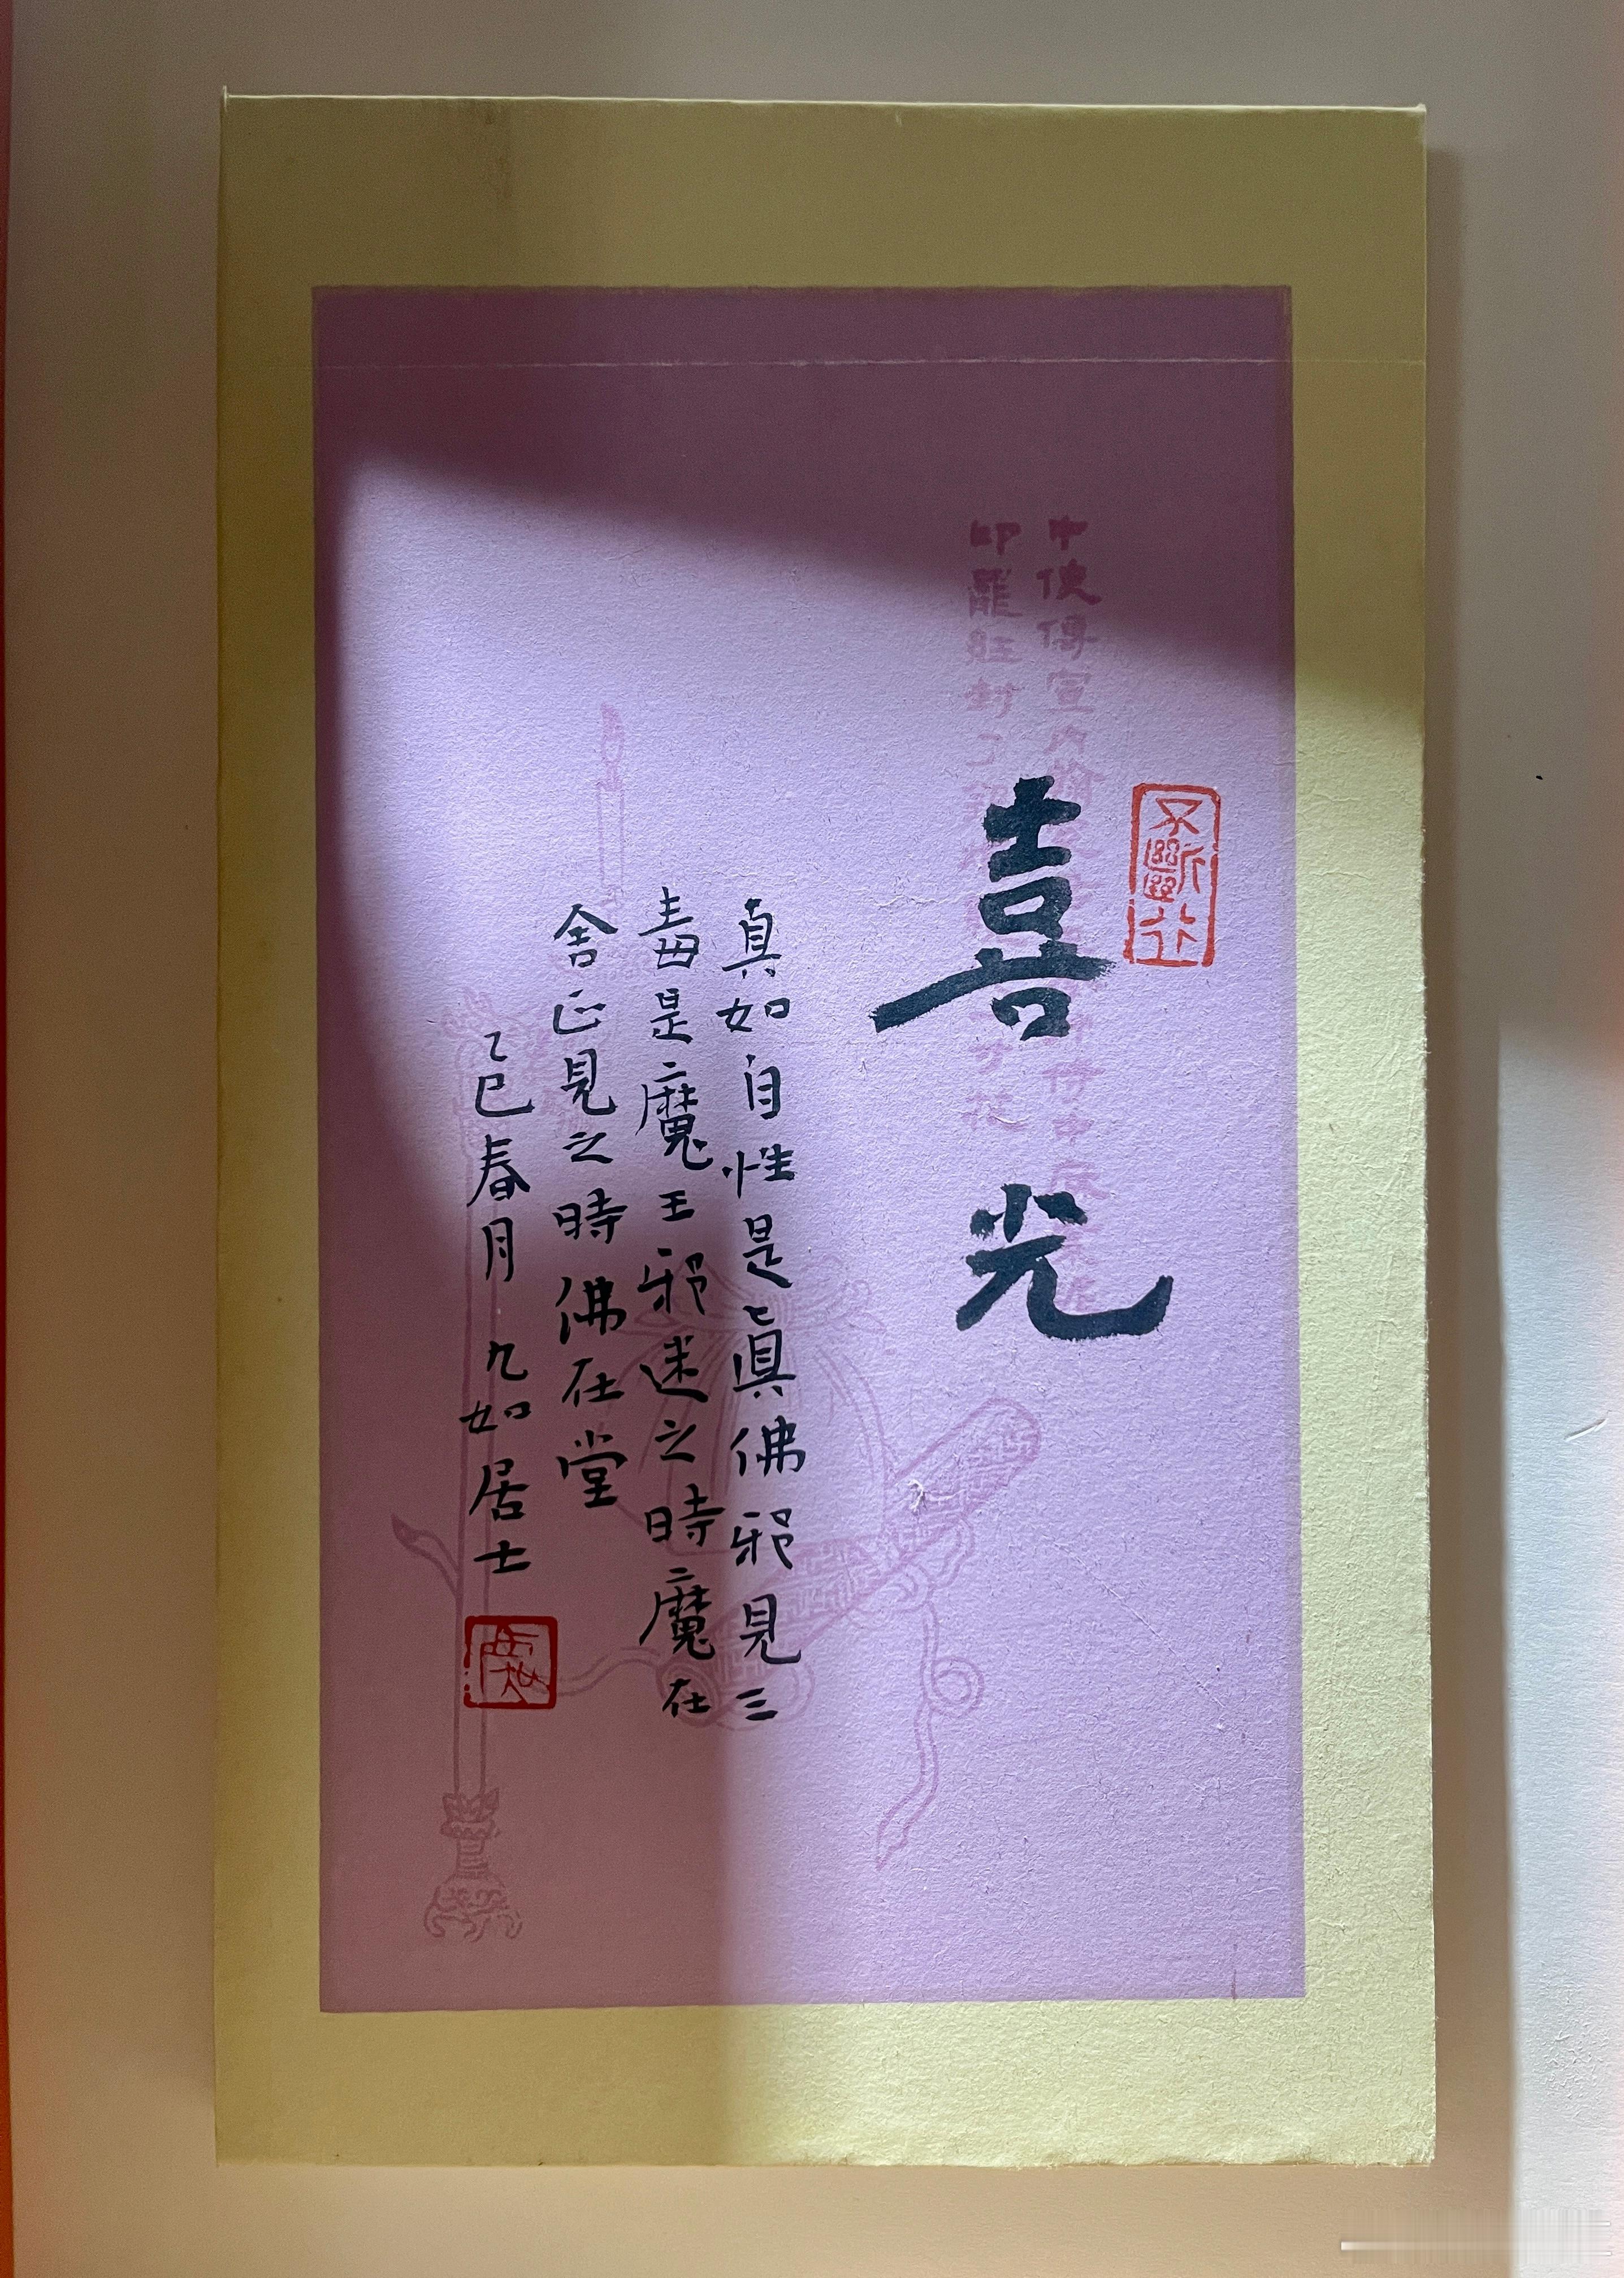 喜光
不斷止
真如自性是真佛邪見三
毒是魔王邪迷之時魔在
舍正見之時佛在堂
乙巳春月九如居士
中使傳宣內
印罷
封了